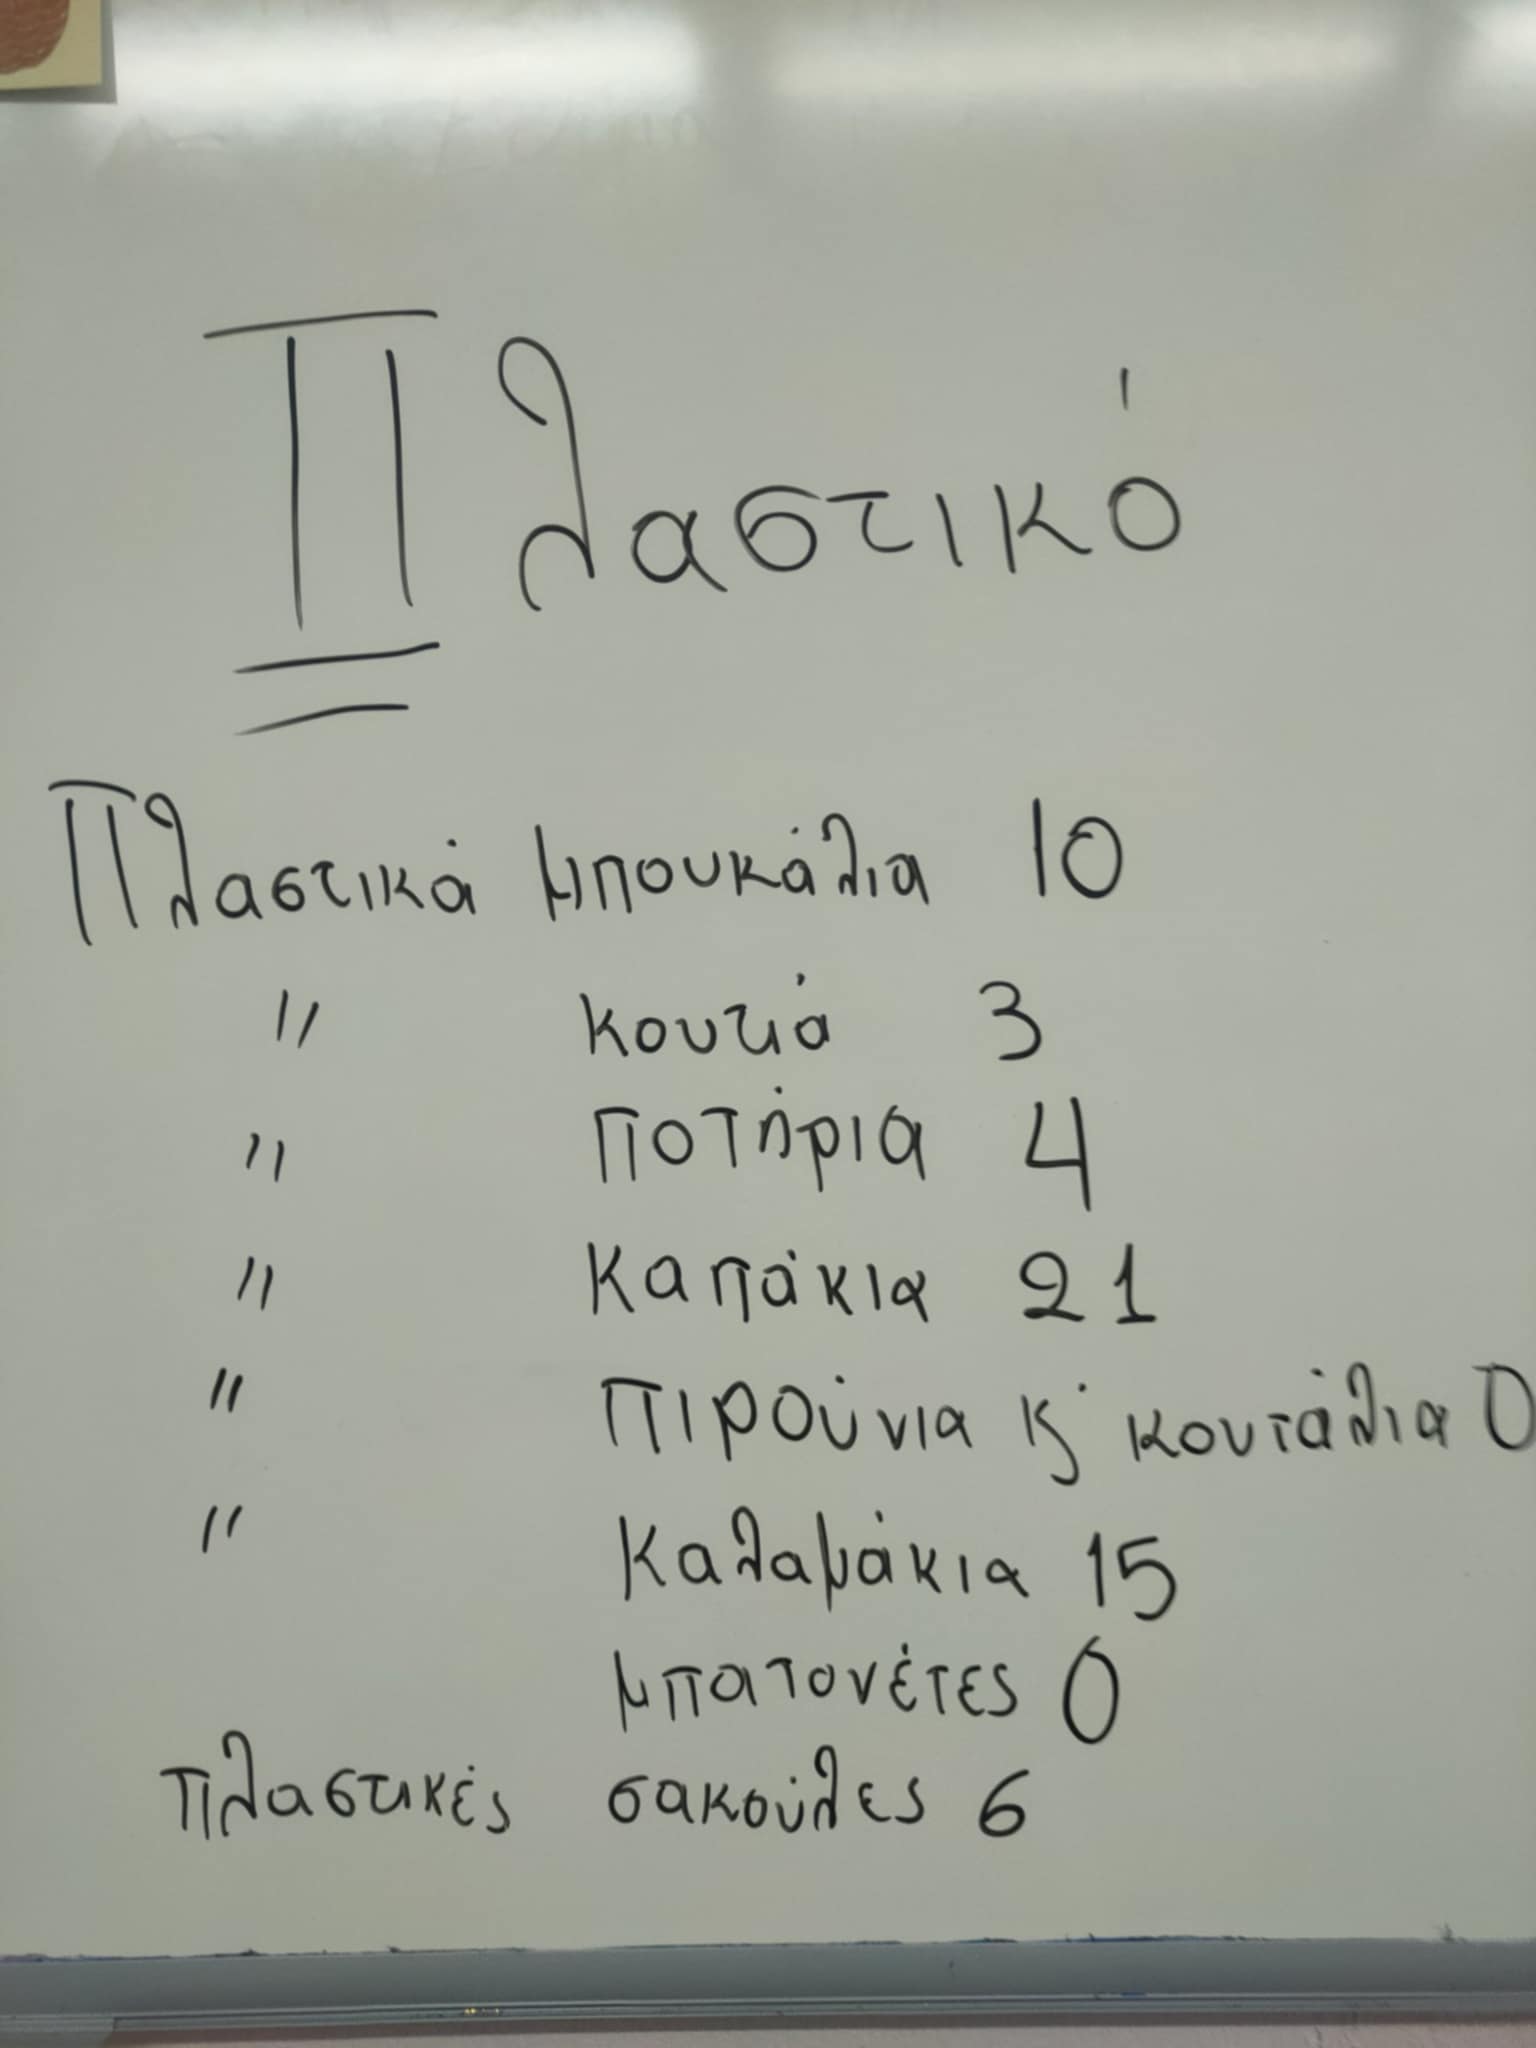 Πλαστικό
Πλαστικά μπουκάλια 10
〃 κουτιά 3
〃 ποτήρια 4
〃 καπάκια 21
〃 πιρούνια κ' κουτάλια 0
〃 καλαμάκια 15
μπατονέτες 0
πλαστικές σακούλες 6